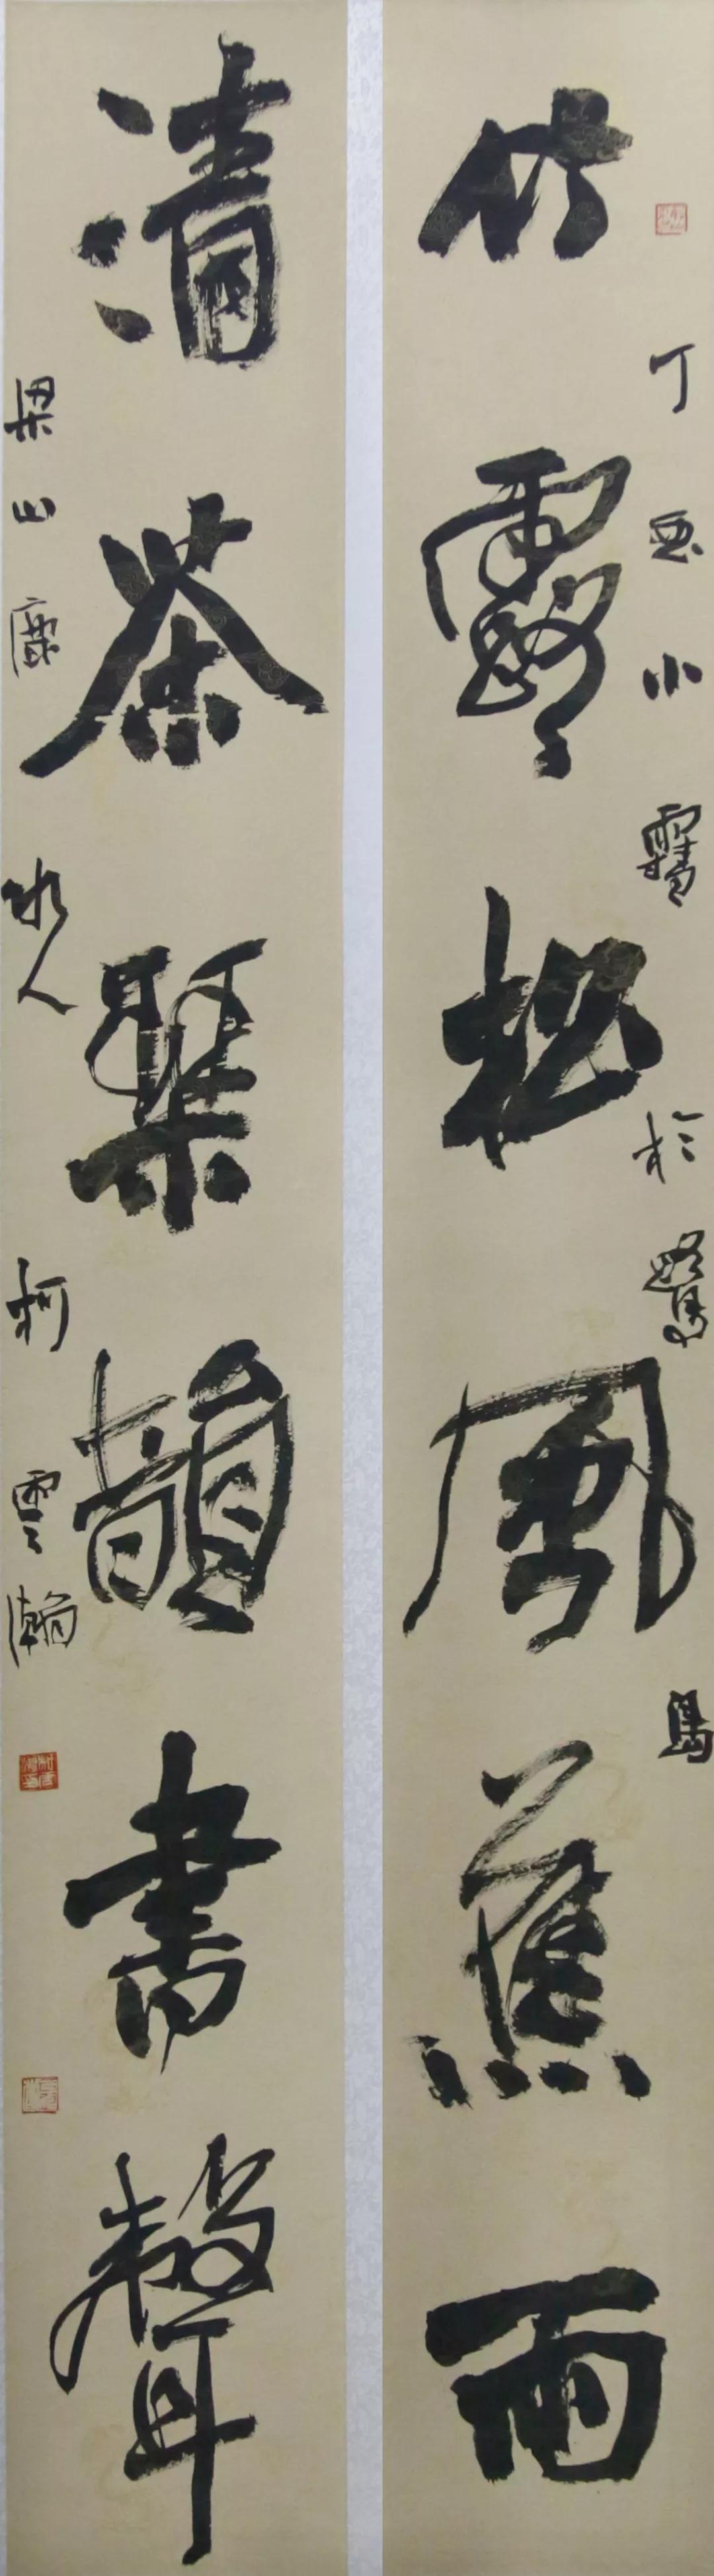 丁酉小雪於鷺島
竹露松風蕉雨
清茶琹韻書聲
梁山鹿水人柯雲瀚